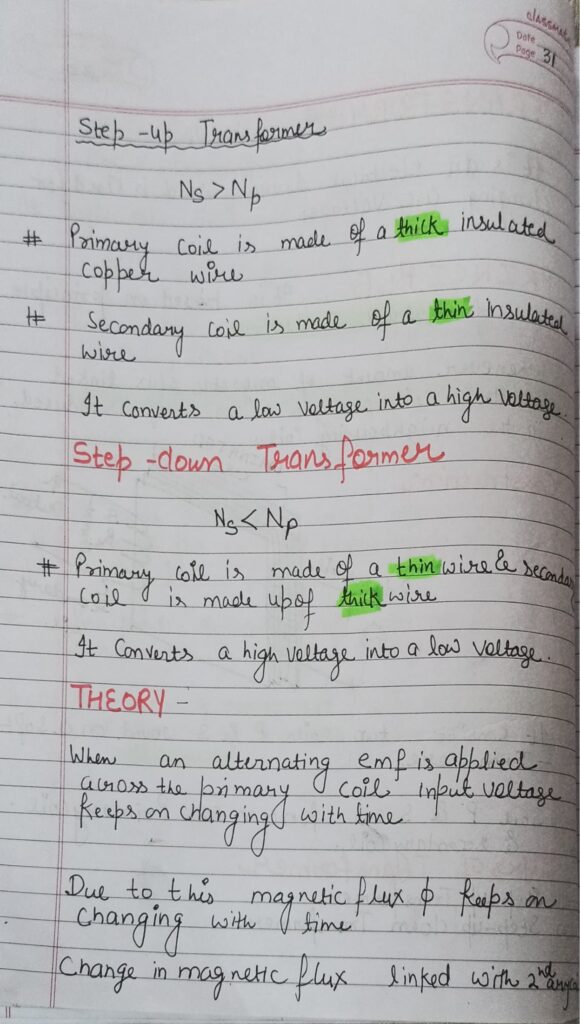 classmate
Date
Page 31
Step-up Transformer
Ns > Np
# Primary coil is made of a thick insulated
copper wire
# Secondary coil is made of a thin insulated
wire
It converts a low voltage into a high voltage.
Step-down Transformer
Ns < Np
# Primary coil is made of a thin wire & secondary
coil is made up of thick wire
It converts a high voltage into a low voltage.
THEORY -
When an alternating emf is applied
across the primary coil input voltage
keeps on changing with time
Due to this magnetic flux ϕ keeps on
changing with time
Change in magnetic flux linked with 2nd